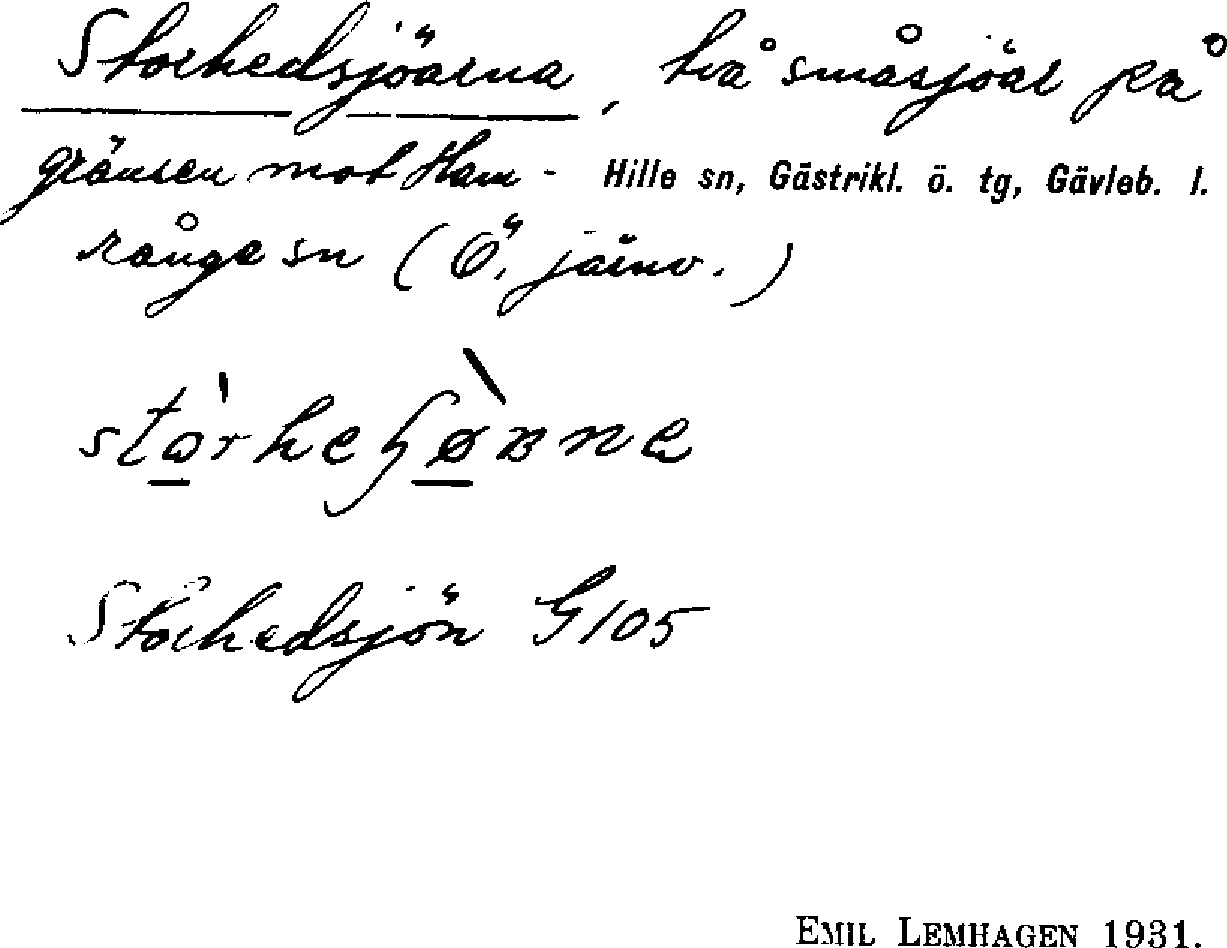 Storhedsjöarna, två småsjöar på
gränsen mot Ham- Hille sn, Gästrikl. ö. tg, Gävleb. l.
rånge sn (Ö. järnv.)
Storhedsjön G105
EMIL LEMHAGEN 1931.